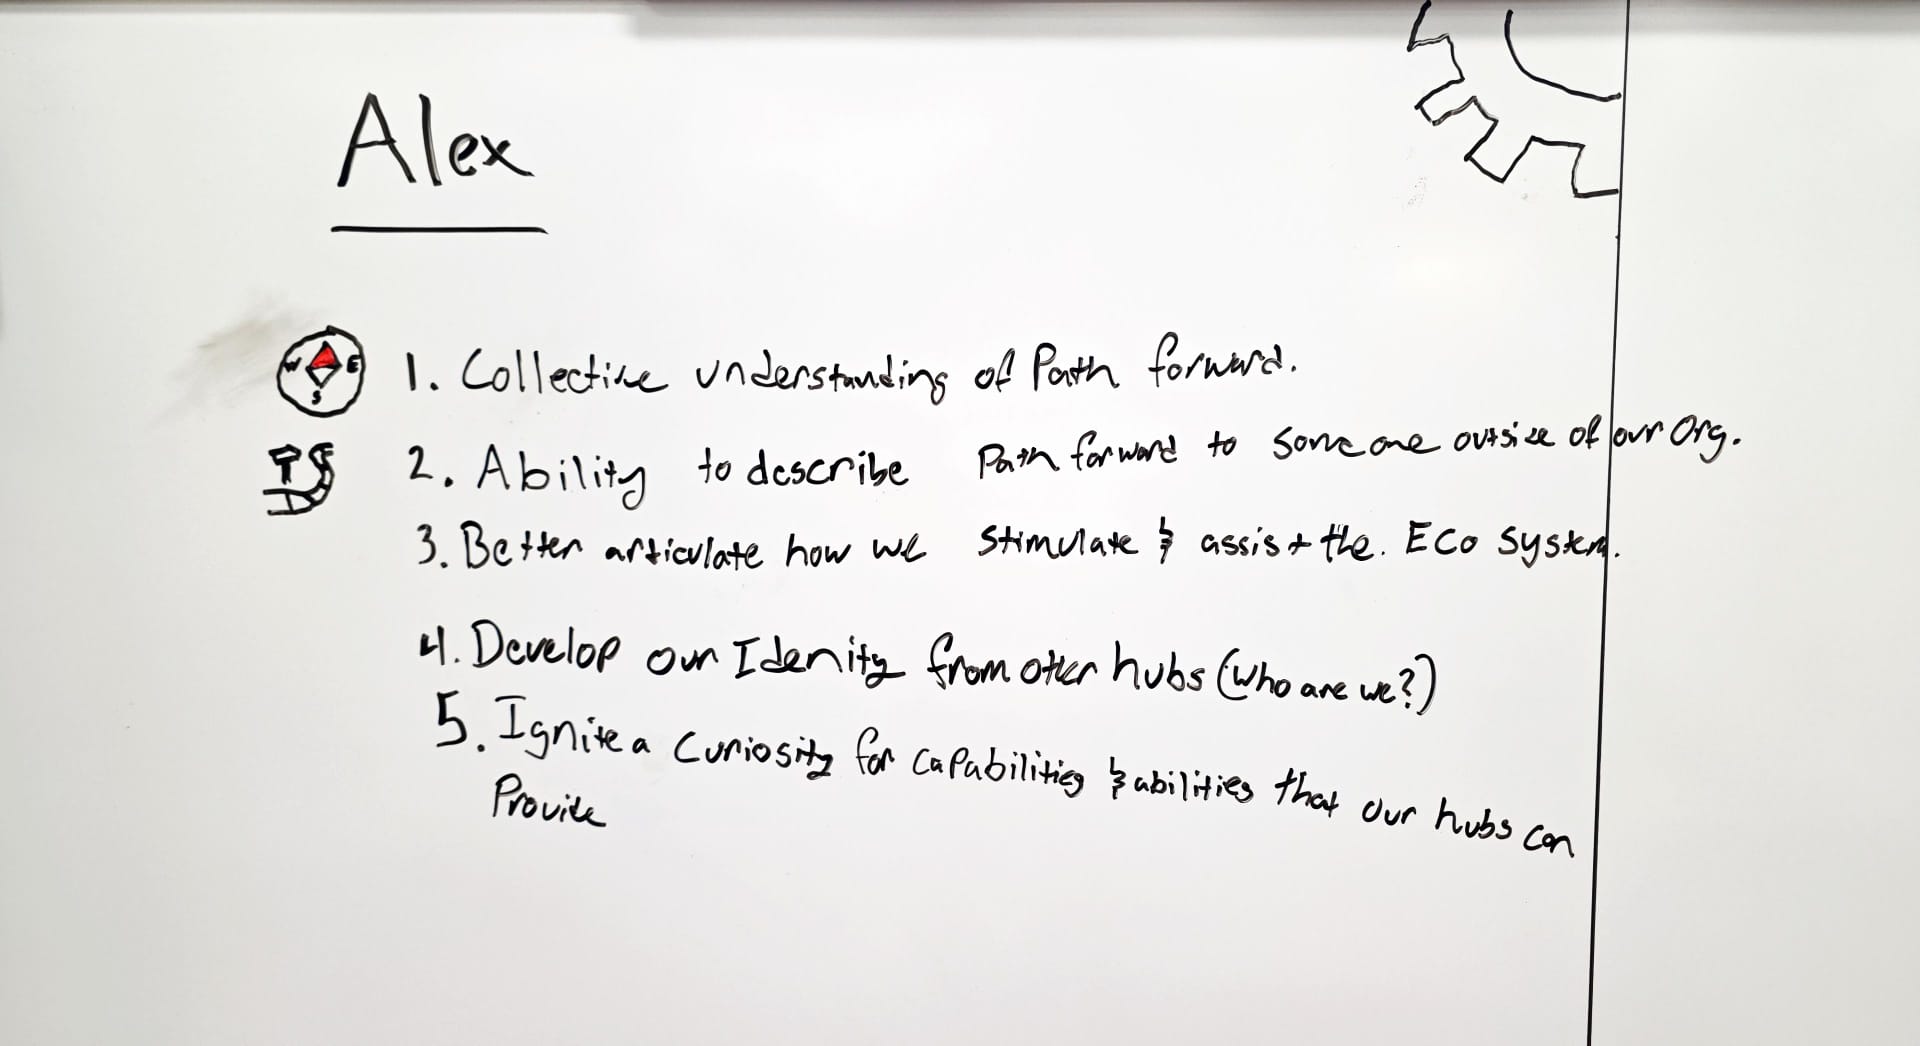 Alex
W E
S
1. Collective understanding of Path forward.
2. Ability to describe Path forward to someone outside of our Org.
3. Better articulate how we stimulate & assist the. Eco System.
4. Develop our Idenity from other hubs (who are we?)
5. Ignite a curiosity for capabilities & abilities that our hubs can
Provide